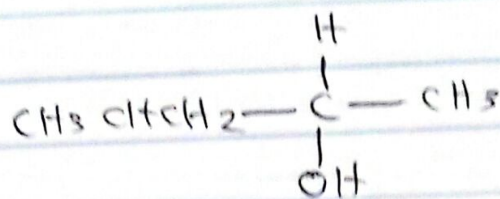 H
CH3 CHCH2 — C — CH3
OH